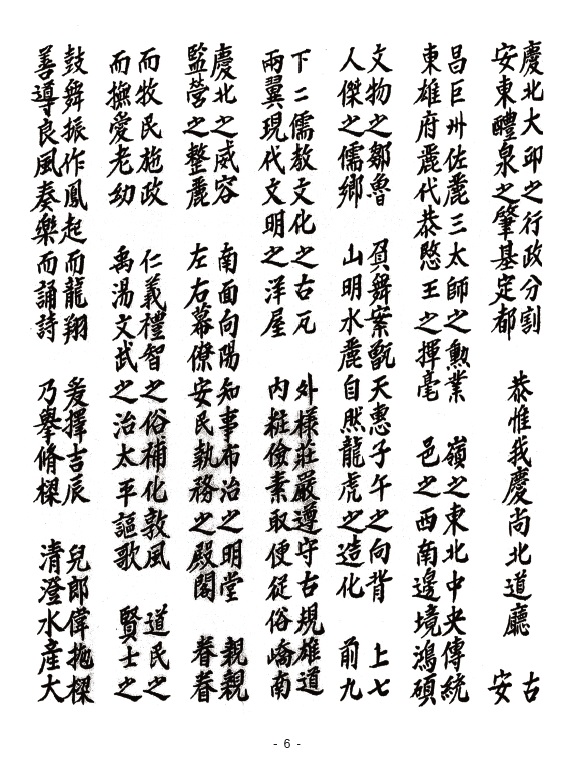 慶北大邱之行政分割
安東醴泉之肇基定都
恭惟我慶尚北道廳
古
安
昌巨州佐麗三太師之勳業 嶺之東北中央傳統
東雄府麗代恭愍王之揮毫 邑之西南邊境鴻碩
文物之鄒魯 負舞案甑天惠子午之向背 上七
人傑之儒鄉 山明水麗自然龍虎之造化 前九
下二儒教文化之古瓦 外樣莊嚴遵守古規雄道
兩翼現代文明之洋屋 內粧儉素取便從俗嶠南
慶北之威容 南面向陽知事布治之明堂 親親
監營之整麗 左右幕僚安民執務之殿閣 眷眷
而牧民施政 仁義禮智之俗補化敦風 道民之
而撫愛老幼 禹湯文武之治太平謳歌 賢士之
鼓舞振作鳳起而龍翔 爰擇吉辰 兒郎偉拋樑
善導良風奏樂而誦詩 乃擧脩樑 清澄水産大
- 6 -